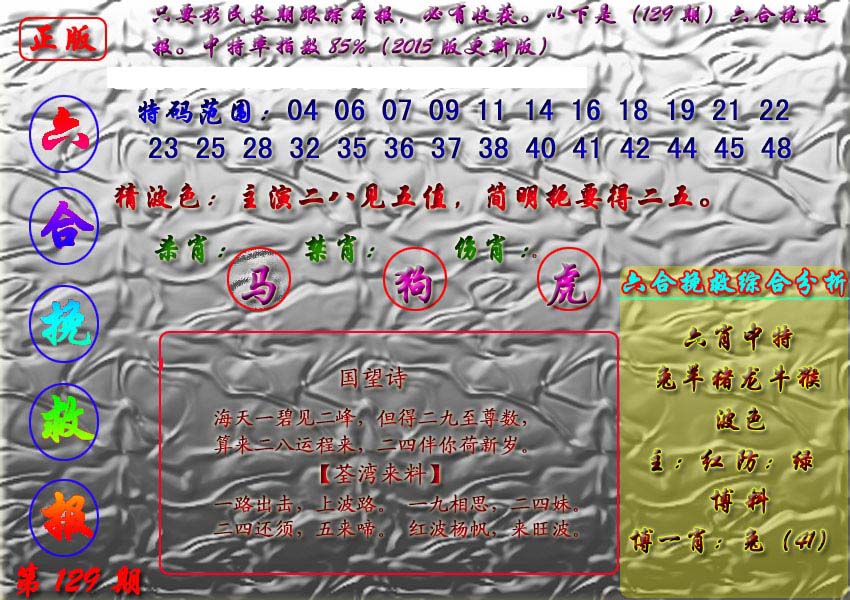 正版
只要彩民长期跟踪本报，必有收获。以下是（129期）六合挽救
报。中特率指数85%（2015版更新版）
六
合
挽
救
报
第129期
特码范围：04 06 07 09 11 14 16 18 19 21 22
23 25 28 32 35 36 37 38 40 41 42 44 45 48
猜波色：主演二八见五值，简明扼要得二五。
杀肖：马 禁肖：狗 伤肖：虎
国望诗
海天一碧见二峰，但得二九至尊数，
算来二八运程来，二四伴你荷新岁。
【荃湾来料】
一路出击，上波路。 一九相思，二四妹。
二四还须，五来啼。 红波杨帆，来旺波。
六合挽救综合分析
六肖中特
兔羊猪龙牛猴
波色
主：红防：绿
博料
博一肖：兔（41）